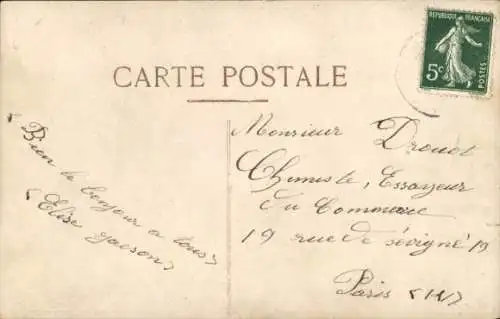 RÉPUBLIQUE FRANÇAISE
5c
POSTES
CARTE POSTALE
Bien le bonjour a tous
Elise
Monsieur Drouot
Chimiste, Essayeur
du Commerce
19 rue de Sévigné 19
Paris